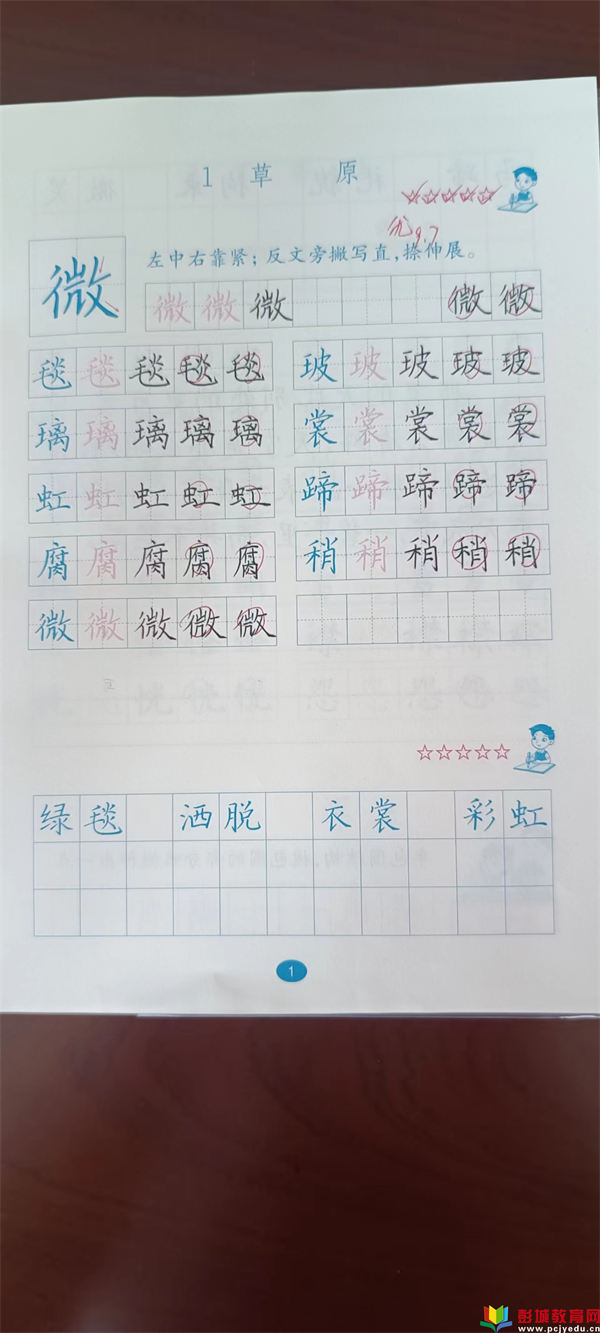 1 草 原
优 9.7
微 左中右靠紧；反文旁撇写直，捺伸展。
微 微 微 微 微
毯 毯 毯 毯 毯 玻 玻 玻 玻 玻
璃 璃 璃 璃 璃 裳 裳 裳 裳 裳
虹 虹 虹 虹 虹 蹄 蹄 蹄 蹄 蹄
腐 腐 腐 腐 腐 稍 稍 稍 稍 稍
微 微 微 微 微
绿 毯 洒 脱 衣 裳 彩 虹
1
彭城教育网
www.pcjyedu.cn